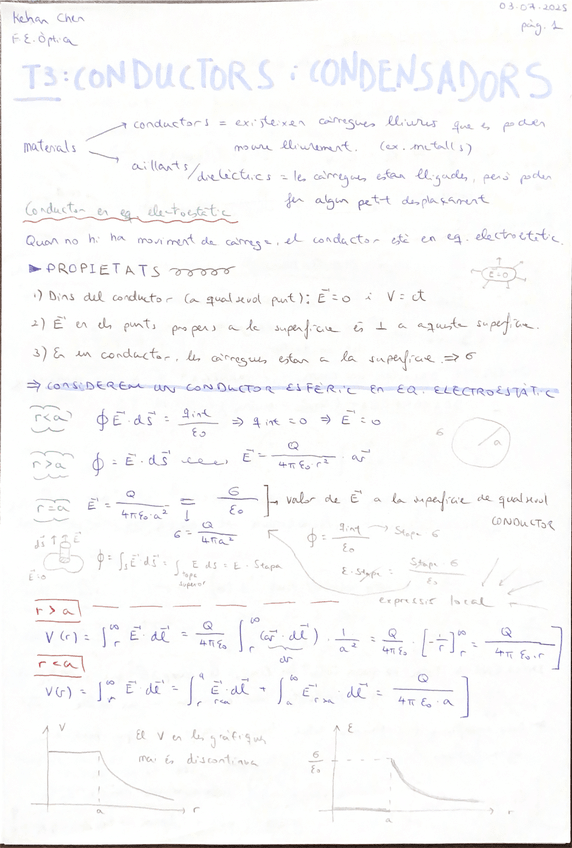 Kehan Chen
F.E. Òptica
03.07.2025
pàg. 1
T3: CONDUCTORS i CONDENSADORS
materials
conductors = existeixen càrregues lliures que es poden
moure lliurement. (ex. metalls)
aïllants/dielèctrics = les càrregues estan lligades, però poden
fer algun petit desplaçament
Conductor en eq. electrostàtic
Quan no hi ha moviment de càrrega, el conductor està en eq. electrostàtic.
► PROPIETATS
E⃗=0
1) Dins del conductor (a qualsevol punt): E⃗=0 i V=ct
2) E⃗ en els punts propers a la superfície és ⊥ a aquesta superfície.
3) En un conductor, les càrregues estan a la superfície ⇒ σ
⇒ CONSIDEREM UN CONDUCTOR ESFÈRIC EN EQ. ELECTROSTÀTIC
r<a ∮ E⃗·ds⃗ = qint/ε₀ ⇒ qint=0 ⇒ E⃗=0
σ a
r>a ∮ = E⃗·ds⃗ E⃗ = Q/4πε₀·r² · ar⃗
r=a E⃗ = Q/4πε₀·a² = σ/ε₀ ] → valor de E⃗ a la superfície de qualsevol
CONDUCTOR
σ = Q/4πa²
ϕ = qint/ε₀ → Stapa σ
ds⃗ E⃗
E⃗=0
ϕ = ∫s E⃗ ds⃗ = ∫tapa superior E ds = E·Stapa
E·Stapa = Stapa·σ/ε₀
expressió local
r>a
V(r) = ∫r^∞ E⃗·dl⃗ = Q/4πε₀ ∫r^∞ (ar⃗·dl⃗)·1/a² = Q/4πε₀·[-1/r]r^∞ = Q/4πε₀·r ]
dr
r<a
V(r) = ∫r^∞ E⃗·dl⃗ = ∫r^a E⃗r<a·dl⃗ + ∫a^∞ E⃗r>a·dl⃗ = Q/4πε₀·a ]
V
a
r
El V en les gràfiques
mai és discontinua
E
σ/ε₀
a
r